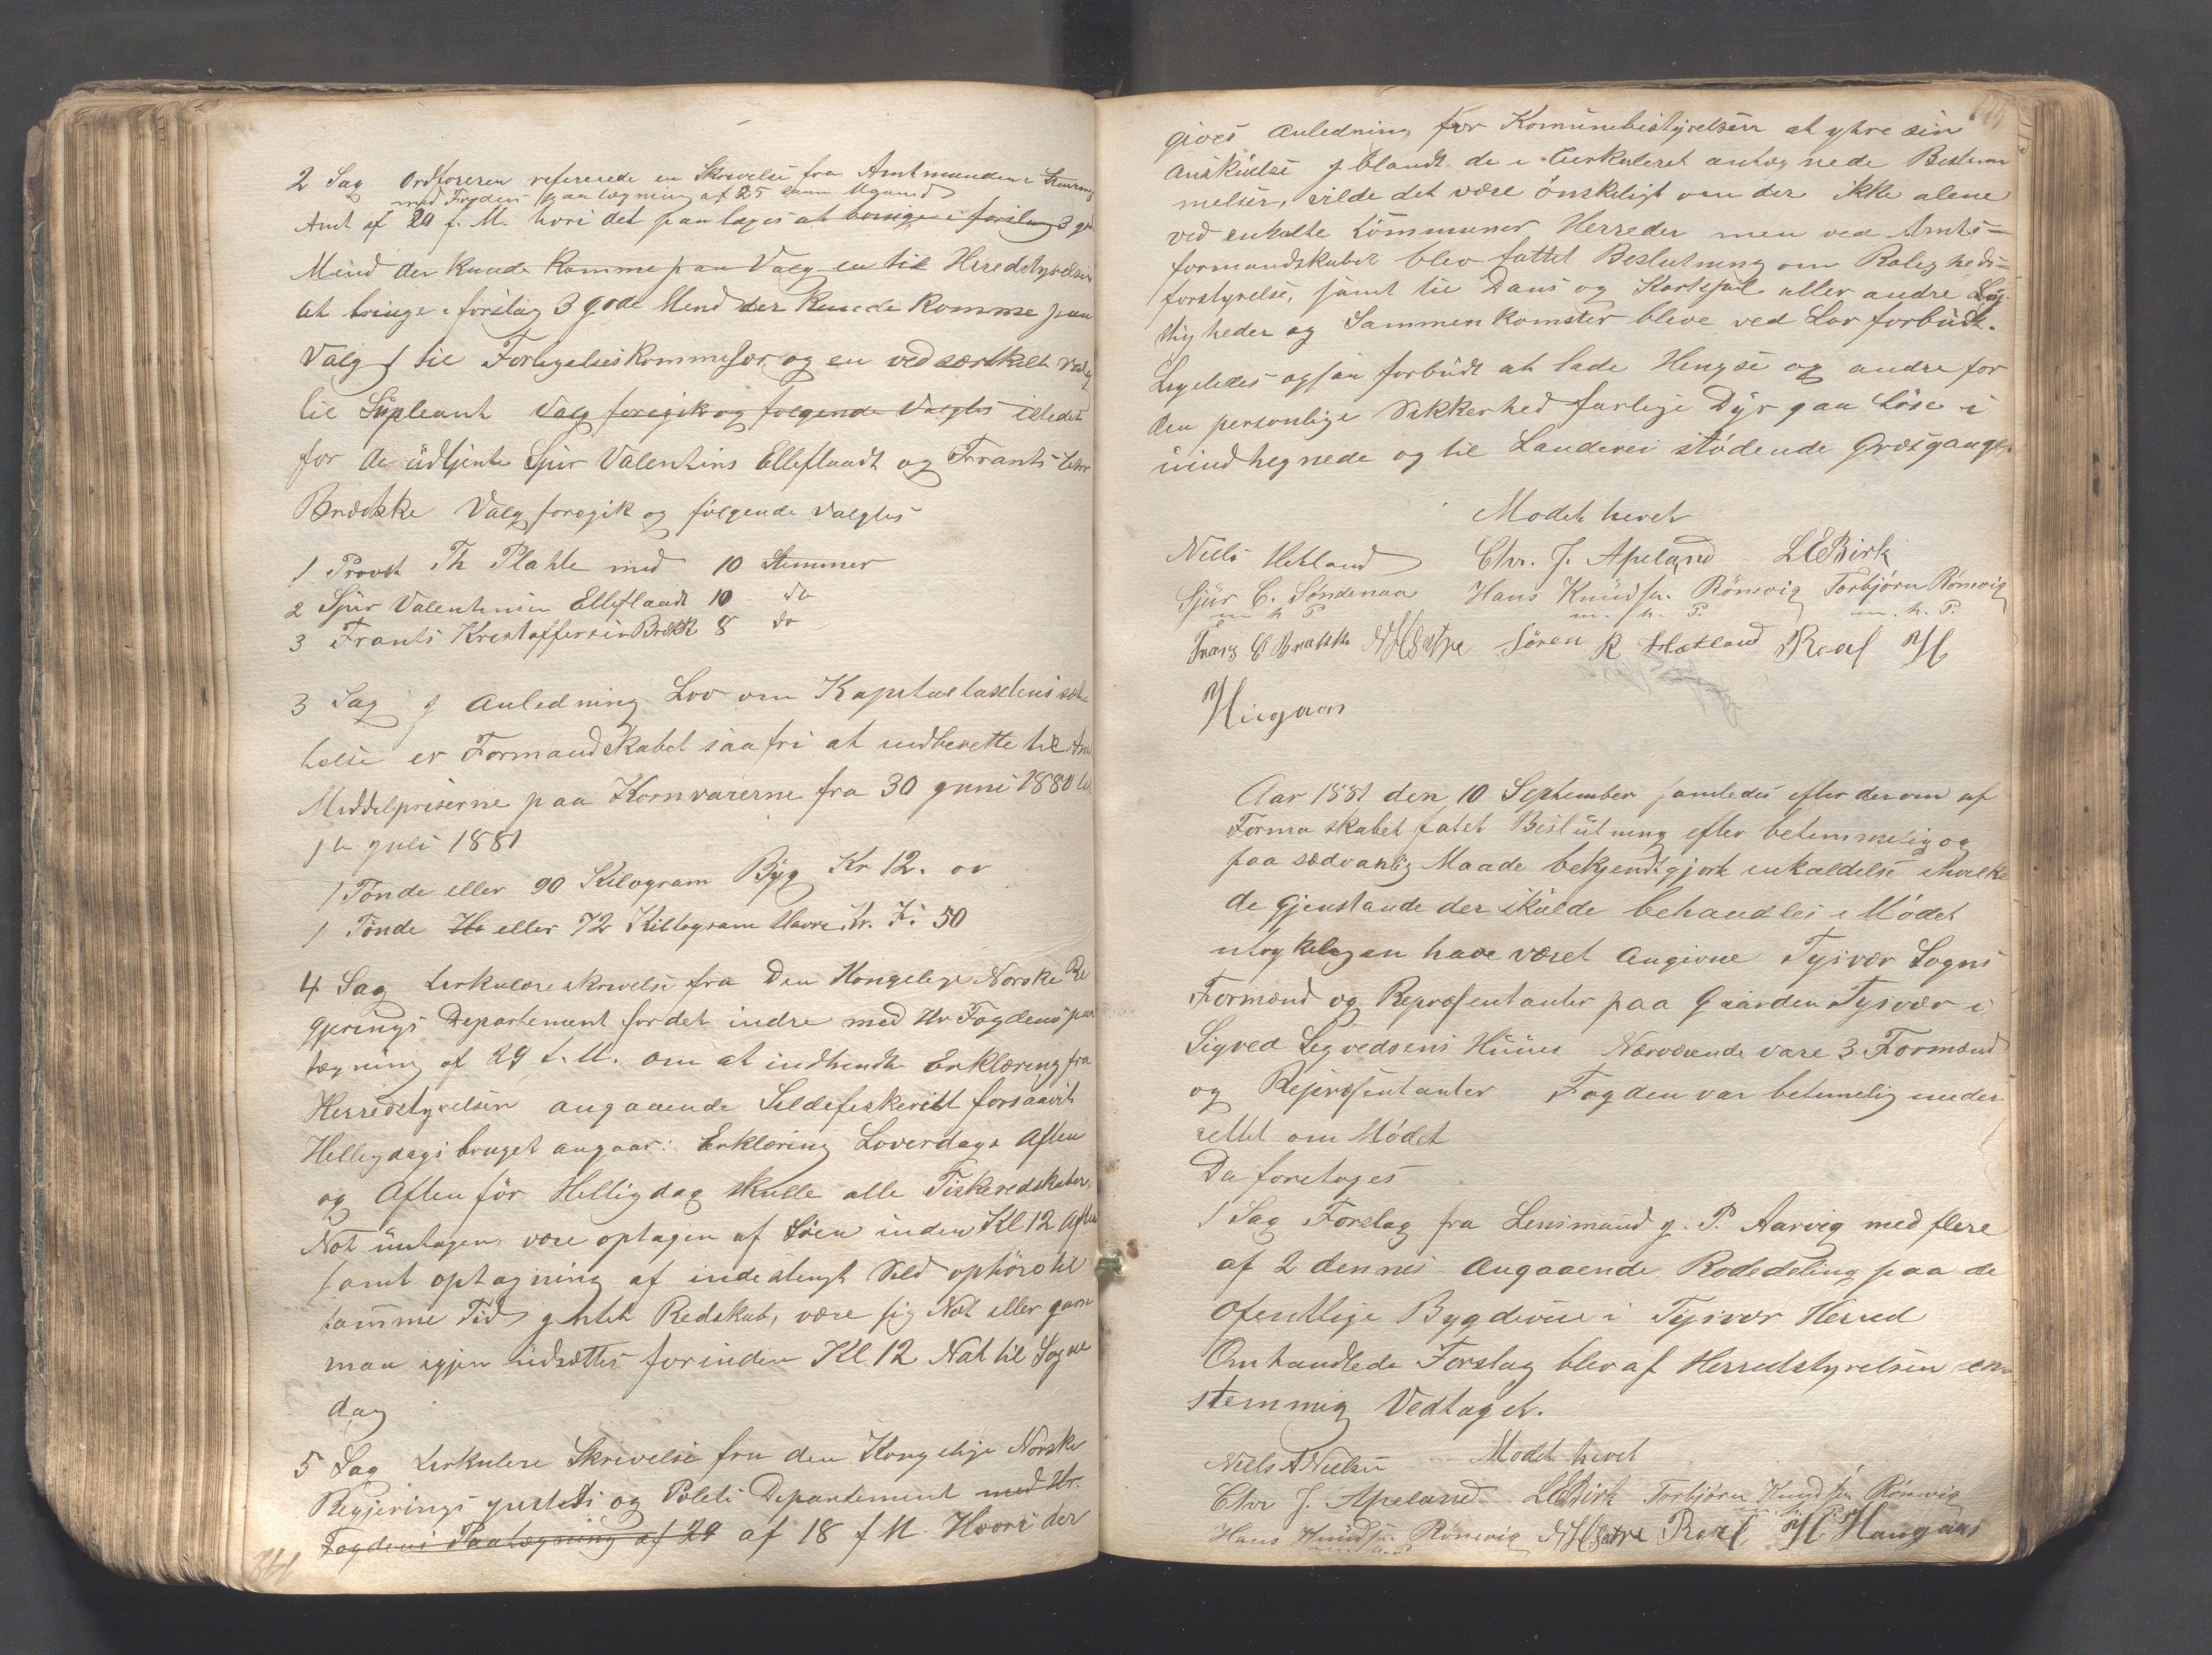 2 Sag Ordføreren refererede en Skrivelse fra Amtmanden i Stavang
med Fogdens paategning af 25 samme Maaned
Amt af 20 f. M. hvori det paalæges at bringe i forslag 3 gode
Mænd der kunde komme paa Valg en til Heredstyrelsen
at bringe i forslag 3 gode Mend der kunde komme paa
Valg 1 til Forligelseskommesær og en ved særskelt Valg
til Supleant Valg foregik og følgende Valgtes istedet
for de udtjente Sjur Valentins Elleflaadt og Frants Kr
Brække Valg foregik og følgende valgtes
1 Provst Th Plahte med 10 Stemmer
2 Sjur Valentinsen Elleflaadt 10 do
3 Frants Krestoffersen Brække 8 do
3 Sag I Anledning Lov om Kapitaltaxtens sæt
telse er Formandskabet saa fri at indberette til Amt
Middelpriserne paa Kornvarerne fra 30 Juni 1880 til
1te Juli 1881
1 Tønde eller 90 Kilogram Byg Kr 12. 00
1 Tønde Ha eller 72 Killogram Havre Kr. 7. 50
4 Sag Sirkulære skrivelse fra Den Kongelige Norske Re
gjerings Departement for det indre med Hr Fogdens paa
tegning af 29 f. M. om at indhendte Erklæring fra
Herredstyrelsen angaaende Sildefiskeriet forsaavit
Helligdags bruget angaar: Erklæring Løverdags Aften
og Aften før Helligdag skulle alle Fiskeredskaber,
Not untagen, være optagen af Søen inden Kl 12 Aften
samt optagning af indestengt Sild ophøre til
samme Tid, intet Redskab, være sig Not eller garn
maa igjen udsættes forinden Kl 12 Nat til Søgne
dag
5 Sag Sirkulere Skrivelse fra den Kongelige Norske
Regjerings Justits og Politi Departement med Hr.
Fogdens Paategning af 29 af 18 f M. Hvori der
gives Anledning for Komunebistyrelsen at ytre sin
Anskuelse iblandt de i Cirkuleret antegnede Bestem
melser, vilde det være ønskeligt om der ikke alene
ved enkelte Kommuner Herreder men ved Amts=
formandskabet blev fattet Beslutning om Roligheds=
forstyrelse, samt til Dans og Kortspil eller andre Ly
stigheder og Sammenkomster bleve ved Lov forbudt.
Ligeledes ogsaa forbudt at lade Hingste og andre for
den personlige Sikkerhed farlige Dyr gaa Løse i
uindhegnede og til Landevei stødende Græsgange.
Mødet hevet
Niels Hetland Chr. J. Apeland L E Birk
Sjur C. Søndenaa Hans Knudsen Rønevig Torbjørn Rønevig
m h P m. h. P. m. h. P.
Frans C Brække N H Sætre Søren R Hetland Roal H
Haugaas
Aar 1881 den 10 September samledes efter derom af
Formaskabet fatet Beslutning efter betimmelig og
paa sædvanlig Maade bekjendtgjort inkaldelse i hvilke
de Gjenstande der skulde behandles i Mødet
utrykelgen have været Angivne Tysvær Sogns
Formænd og Repræsentanter paa Gaarden Tysvær i
Sigved Sigvedsens Huus Nærværende vare 3 Formænd
og Repræsentanter Fogden var betimelig under
rettet om Mødet
Da foretages
1 Sag Forslag fra Lensmand J. P. Aarvig med flere
af 2 dennes Angaaende Rodedeling paa de
ofentlige Bygdeveie i Tysvær Herred
Omhandlede Forslag blev af Herredstyrelsen en
stemmig Vedtaget.
Niels A Nielsen Mødet hevet
Chr J. Apeland L E Birk Torbjørn Knudsen Rønevig
Hans Knudsen Rønevig N H Sætre Roal H. Haugaas